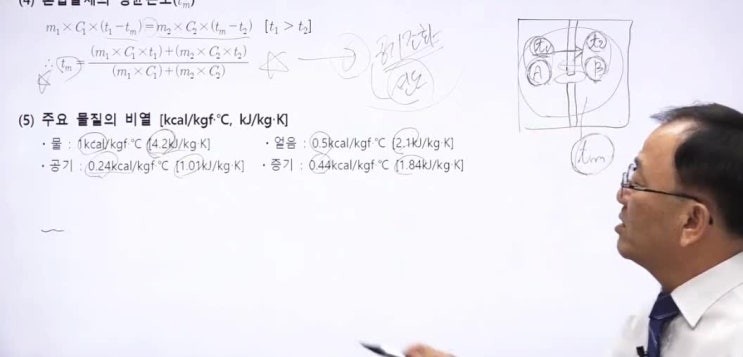 (4) 혼합물체의 평균온도(tₘ)
m₁×C₁×(t₁−tₘ)=m₂×C₂×(tₘ−t₂) [t₁>t₂]
∴ tₘ=(m₁×C₁×t₁)+(m₂×C₂×t₂)
(m₁×C₁)+(m₂×C₂)
공기조화
t₁ t₂
A B
tₘ
(5) 주요 물질의 비열 [kcal/kgf·℃, kJ/kg·K]
· 물 : 1kcal/kgf·℃ [4.2kJ/kg·K] · 얼음 : 0.5kcal/kgf·℃ [2.1kJ/kg·K]
· 공기 : 0.24kcal/kgf·℃ [1.01kJ/kg·K] · 증기 : 0.44kcal/kgf·℃ [1.84kJ/kg·K]